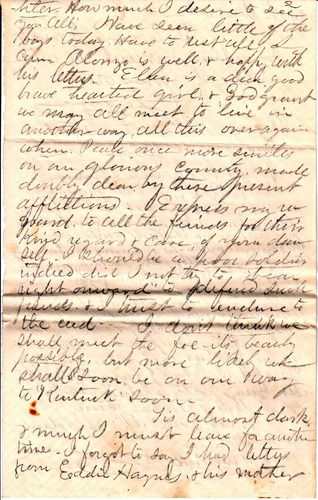 after How much I desire to see
you All. Have seen little of the
boys today. Have to rest up. I
Alonzo is well & happy with
his letters. Ellen is a dear good
brave hearted girl, & God grant
we may all meet to live in
another way, all this over again
when Peace once more smiles
on our glorious Country, made
doubly dear, by these present
afflictions. Express my re
gard to all the friends for their
kind regard & care, of your dear
self. I should be a poor soldier
indeed did I not try to bear
right onward to defend such
friends & I trust to endure to
the end. I don't think we
shall meet the foe its
possible, but more likely we
shall soon be on our way
to Kentuck soon.
Tis almost dark
& much I must leave for another
time. I forgot to say I had letters
from Eddie Haynes & his mother